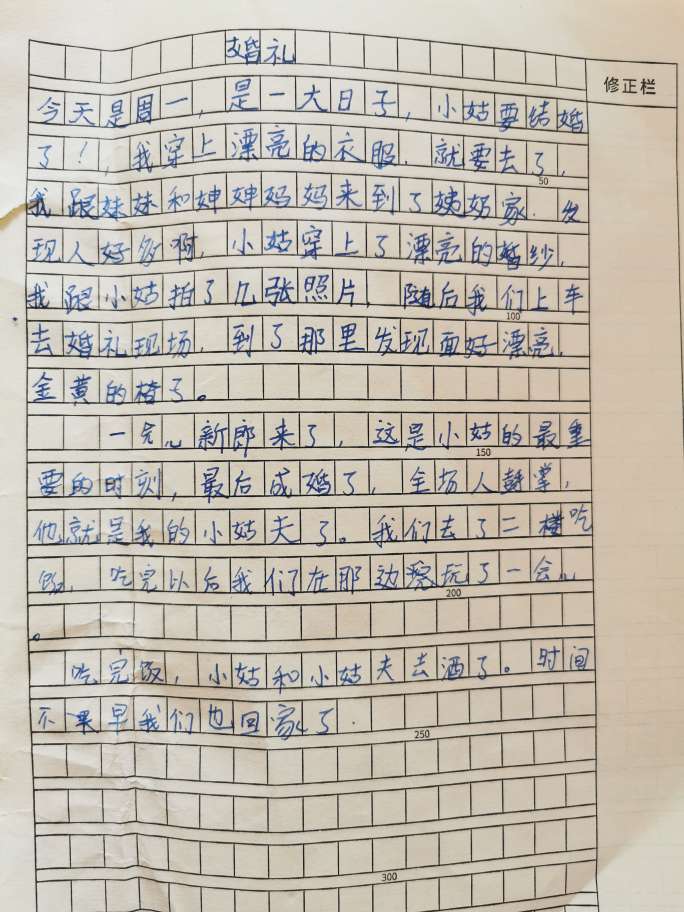 婚礼
修正栏
今天是周一，是一大日子，小姑要结婚
了！，我穿上漂亮的衣服．就要去了，
50
我跟妹妹和婶婶妈妈来到了姨奶家．发
现人好多啊，小姑穿上了漂亮的婚纱，
我跟小姑拍了几张照片，随后我们上车
100
去婚礼现场，到了那里发现面好漂亮，
金黄的椅子。
一会儿新郎来了，这是小姑的最重
150
要的时刻，最后成婚了，全场人鼓掌，
他就是我的小姑夫了。我们去了二楼吃
饭，吃完以后我们在那边玩了一会儿
200
。
吃完饭，小姑和小姑夫去酒了。时间
不早我们也回家了．
250
300